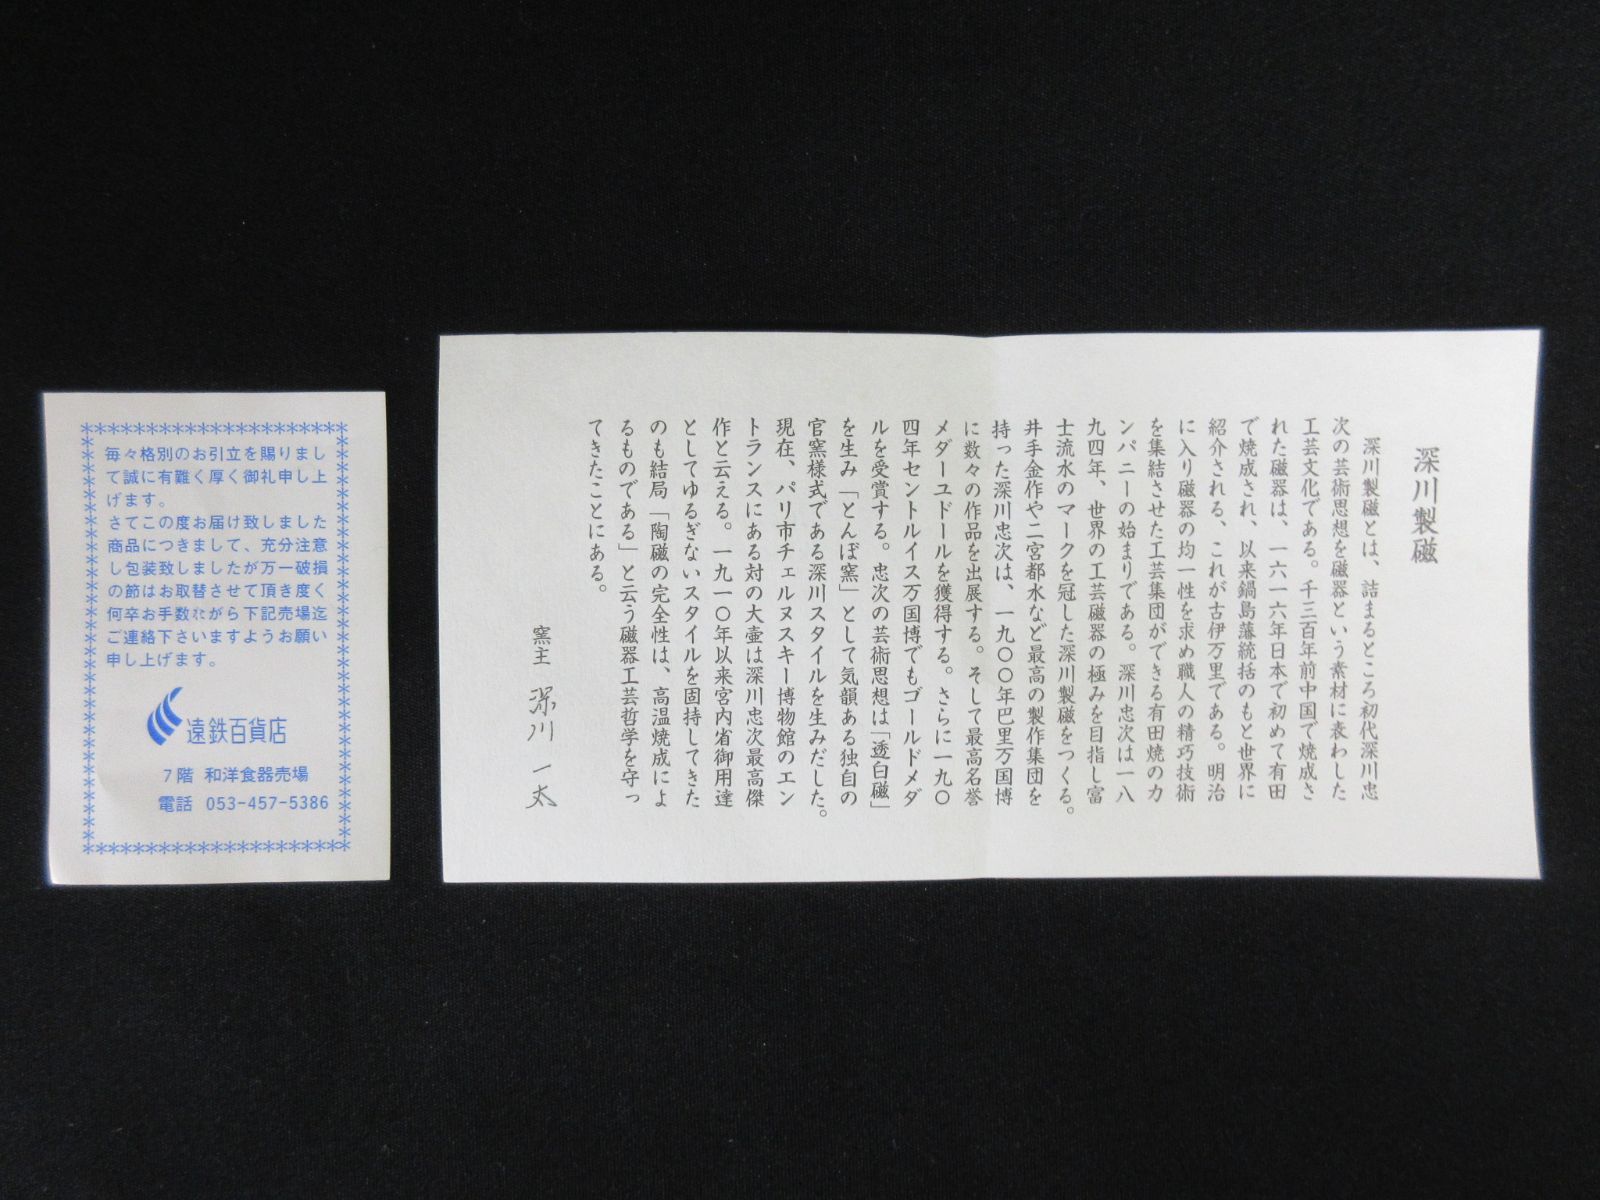 毎々格別のお引立を賜りまし
て誠に有難く厚く御礼申し上
げます。
さてこの度お届け致しました
商品につきまして、充分注意
し包装致しましたが万一破損
の節はお取替させて頂き度く
何卒お手数ながら下記売場迄
ご連絡下さいますようお願い
申し上げます。
遠鉄百貨店
7階 和洋食器売場
電話 053-457-5386
深川製磁
深川製磁とは、詰まるところ初代深川忠
次の芸術思想を磁器という素材に表わした
工芸文化である。千三百年前中国で焼成さ
れた磁器は、一六一六年日本で初めて有田
で焼成され、以来鍋島藩統括のもと世界に
紹介される、これが古伊万里である。明治
に入り磁器の均一性を求め職人の精巧技術
を集結させた工芸集団ができる有田焼の力
ンパニーの始まりである。深川忠次は一八
九四年、世界の工芸磁器の極みを目指し富
士流水のマークを冠した深川製磁をつくる。
井手金作や二宮都水など最高の製作集団を
持った深川忠次は、一九〇〇年巴里万国博
に数々の作品を出展する。そして最高名誉
メダーユドールを獲得する。さらに一九〇
四年セントルイス万国博でもゴールドメダ
ルを受賞する。忠次の芸術思想は「透白磁」
を生み「とんぼ窯」として気韻ある独自の
官窯様式である深川スタイルを生みだした。
現在、パリ市チェルヌスキー博物館のエン
トランスにある対の大壷は深川忠次最高傑
作と云える。一九一〇年以来宮内省御用達
としてゆるぎないスタイルを固持してきた
のも結局「陶磁の完全性は、高温焼成によ
るものである」と云う磁器工芸哲学を守っ
てきたことにある。
窯主 深川一太